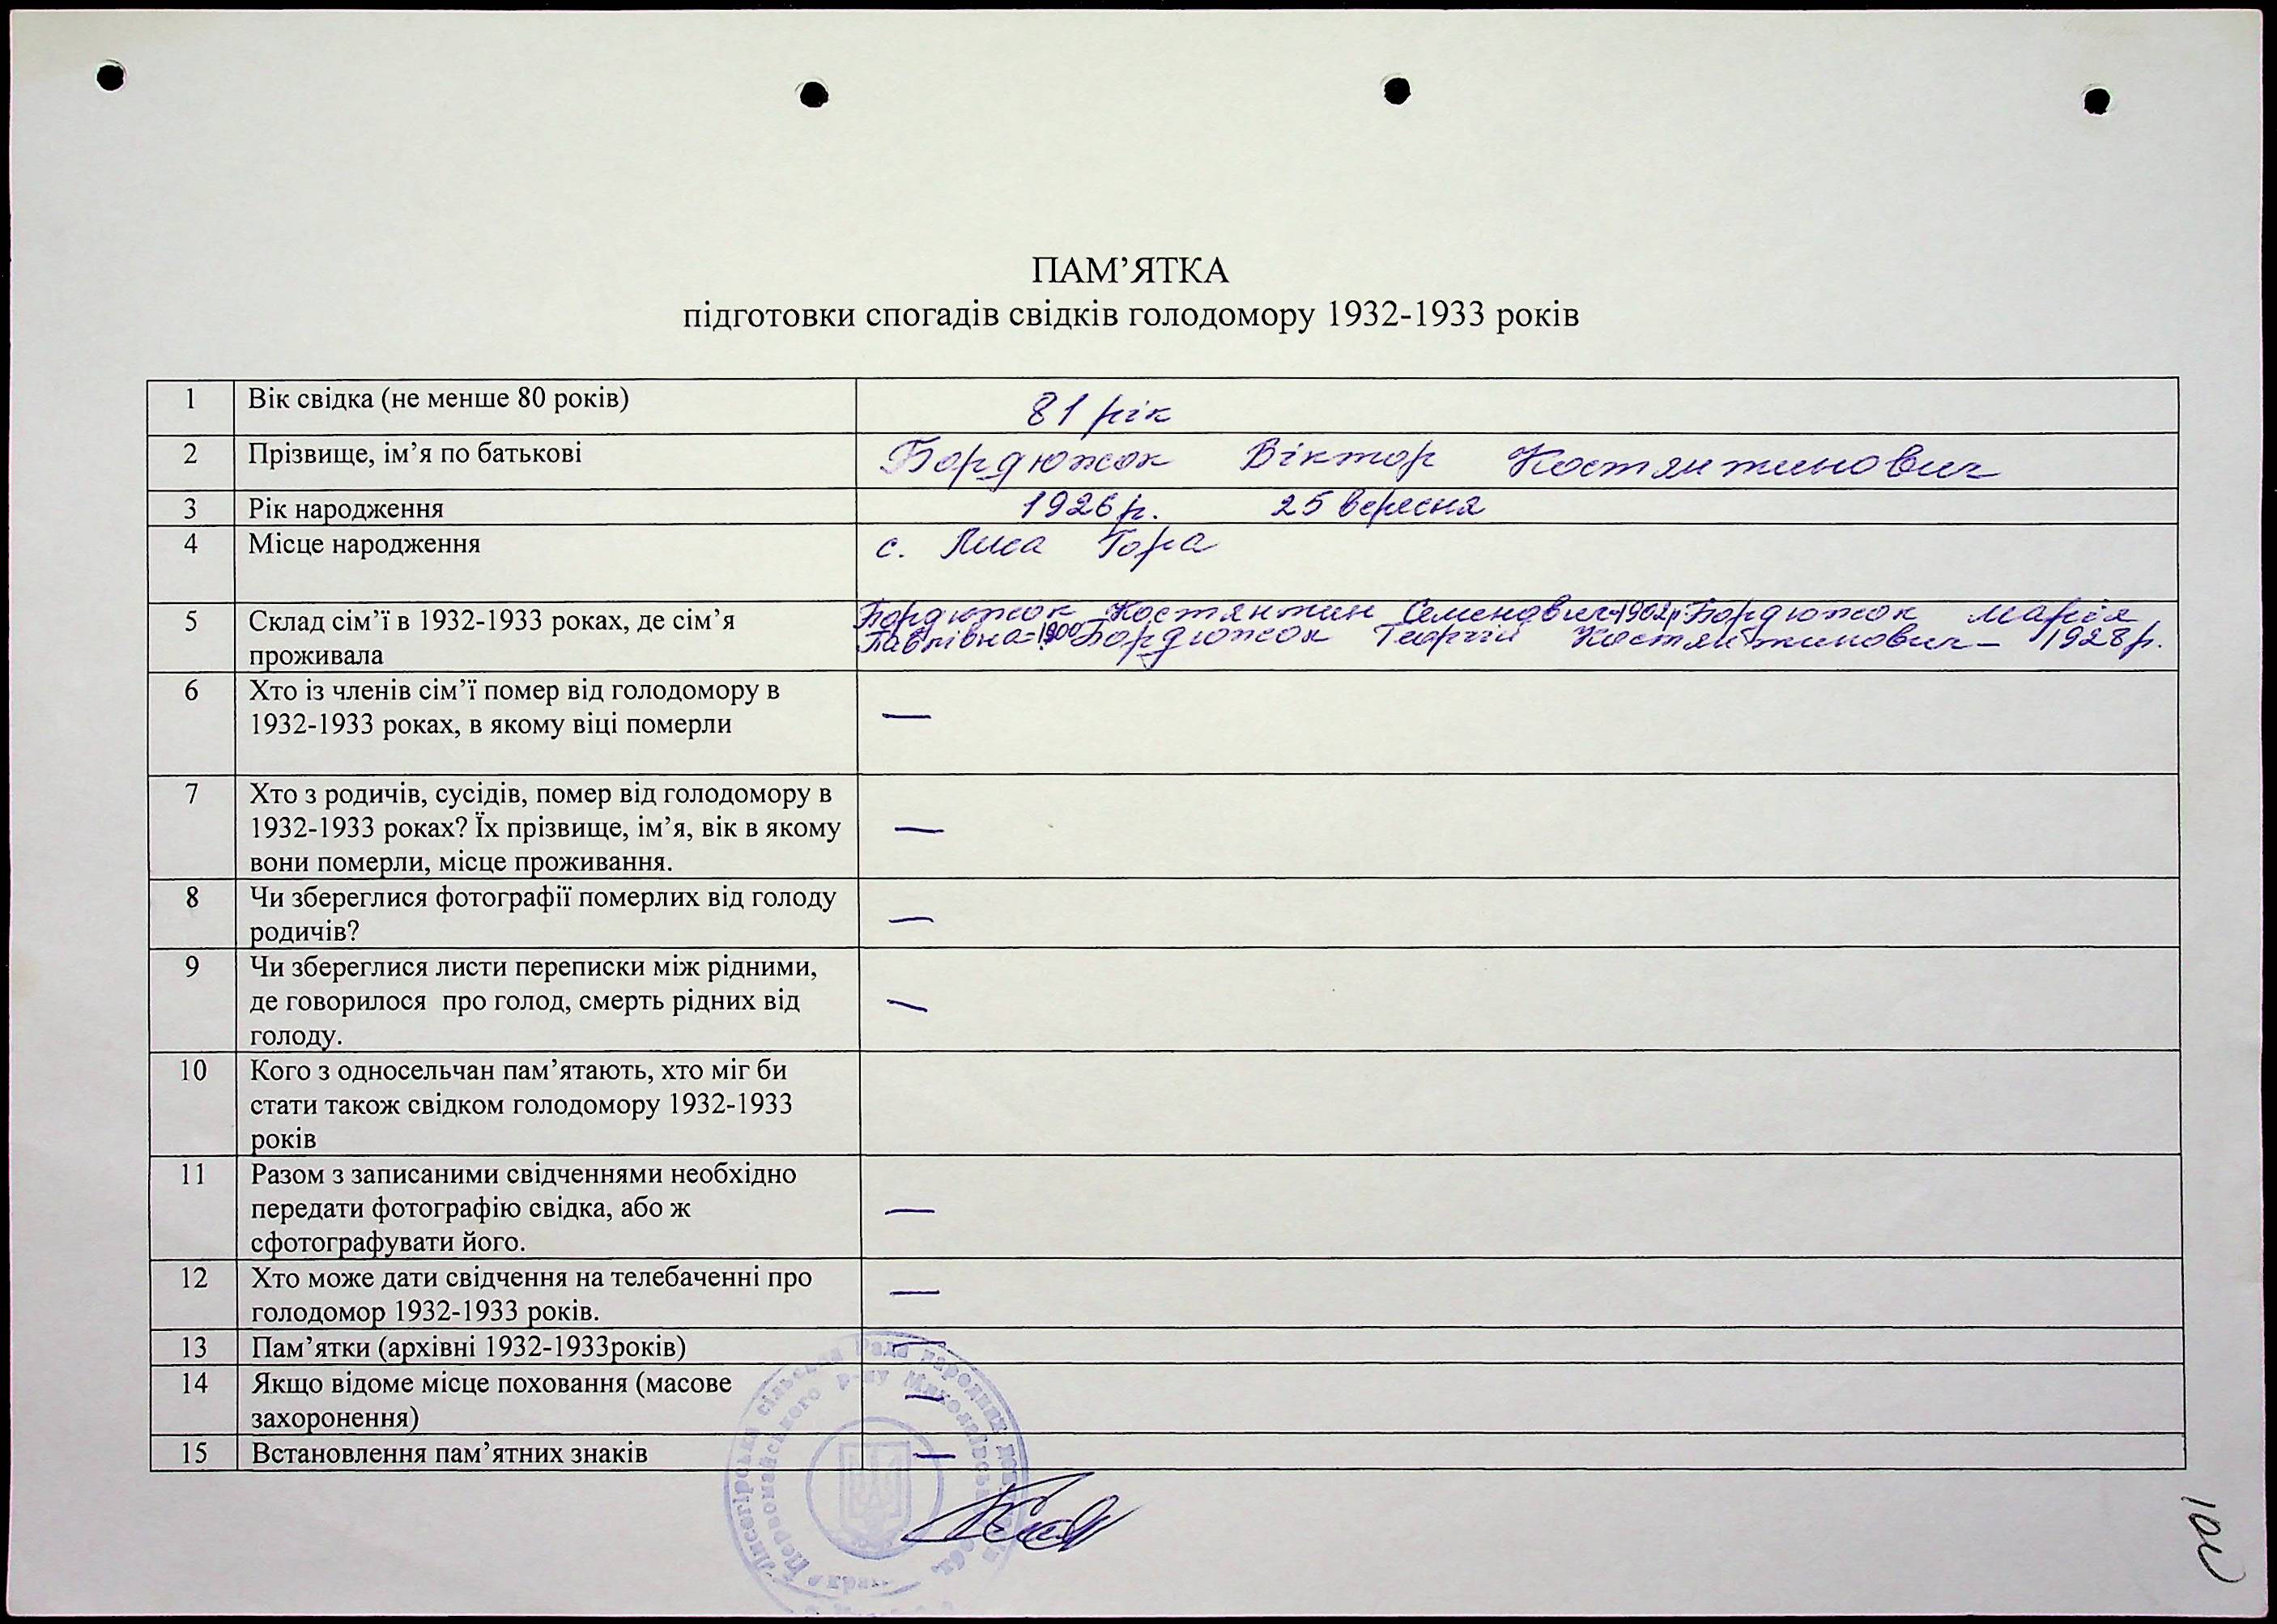 ПАМ’ЯТКА
підготовки спогадів свідків голодомору 1932-1933 років
1 Вік свідка (не менше 80 років) 81 рік
2 Прізвище, ім’я по батькові Бордюжок Віктор Костянтинович
3 Рік народження 1926 р. 25 вересня
4 Місце народження с. Лиса Гора
5 Склад сім’ї в 1932-1933 роках, де сім’я
проживала
Бордюжок Костянтин Семенович-1902р Бордюжок Марія
Павлівна-1900 Бордюжок Георгій Костянтинович – 1928р.
6 Хто із членів сім’ї помер від голодомору в —
1932-1933 роках, в якому віці померли
7 Хто з родичів, сусідів, помер від голодомору в
1932-1933 роках? Їх прізвище, ім’я, вік в якому —
вони померли, місце проживання.
8 Чи збереглися фотографії померлих від голоду —
родичів?
9 Чи збереглися листи переписки між рідними,
де говорилося про голод, смерть рідних від —
голоду.
10 Кого з односельчан пам’ятають, хто міг би
стати також свідком голодомору 1932-1933
років
11 Разом з записаними свідченнями необхідно
передати фотографію свідка, або ж —
сфотографувати його.
12 Хто може дати свідчення на телебаченні про —
голодомор 1932-1933 років.
13 Пам’ятки (архівні 1932-1933років) —
14 Якщо відоме місце поховання (масове —
захоронення)
15 Встановлення пам’ятних знаків —
Лисогірська сільська Рада народних
Первомайського р-ну Миколаївської